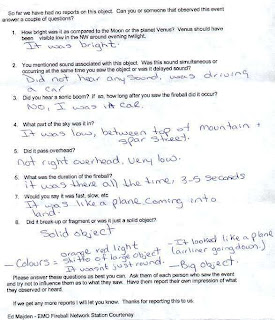 So far we have had no reports on this object. Can you or someone that observed this event
answer a couple of questions?
1. How bright was it as compared to the Moon or the planet Venus? Venus should have
been visible low in the NW around evening twilight.
It was bright.
2. You mentioned sound associated with this object. Was this sound simultaneous or
occurring at the same time you saw the object or was it delayed sound?
Did not hear any sound, was driving
a car
3. Did you hear a sonic boom? If so, how long after you saw the fireball did it occur?
No, I was in car.
4. What part of the sky was it in?
It was low, between top of mountain +
spar street.
5. Did it pass overhead?
not right overhead, very low.
6. What was the duration of the fireball?
it was there all the time, 3-5 seconds
7. Would you say it was fast, slow, etc
It was like a plane coming into
land.
8. Did it break up or fragment or was it just a solid object?
Solid object
- Colours = orange red light
ditto of large object
It wasn't just round.
- It looked like a plane
(airliner going down.)
- Big object.
Please answer these questions as best you can. Ask them of each person who saw the event
and try not to influence them as to what they saw. Have them report their own impression of what
they observed or heard.
If we get any more reports I will let you know. Thanks for reporting this to us.
Ed Majden - EMO Fireball Network Station Courtenay